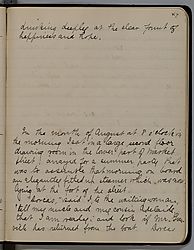 drinking deeply at the clear fount of
happiness and hope.
In the month of August at 8 o'clock in
the morning I sat in a large second floor
drawing room in the lower part of Market
Street, arrayed for a summer party that
was to assemble that morning on board
an elegantly fitted up steamer which was now
lying at the foot of the street.
"Dorcas," said I to the waiting woman,
"tell my uncle and my cousin Adelaide
that I am ready: and look if Mr.
has returned from the boat." Dorcas